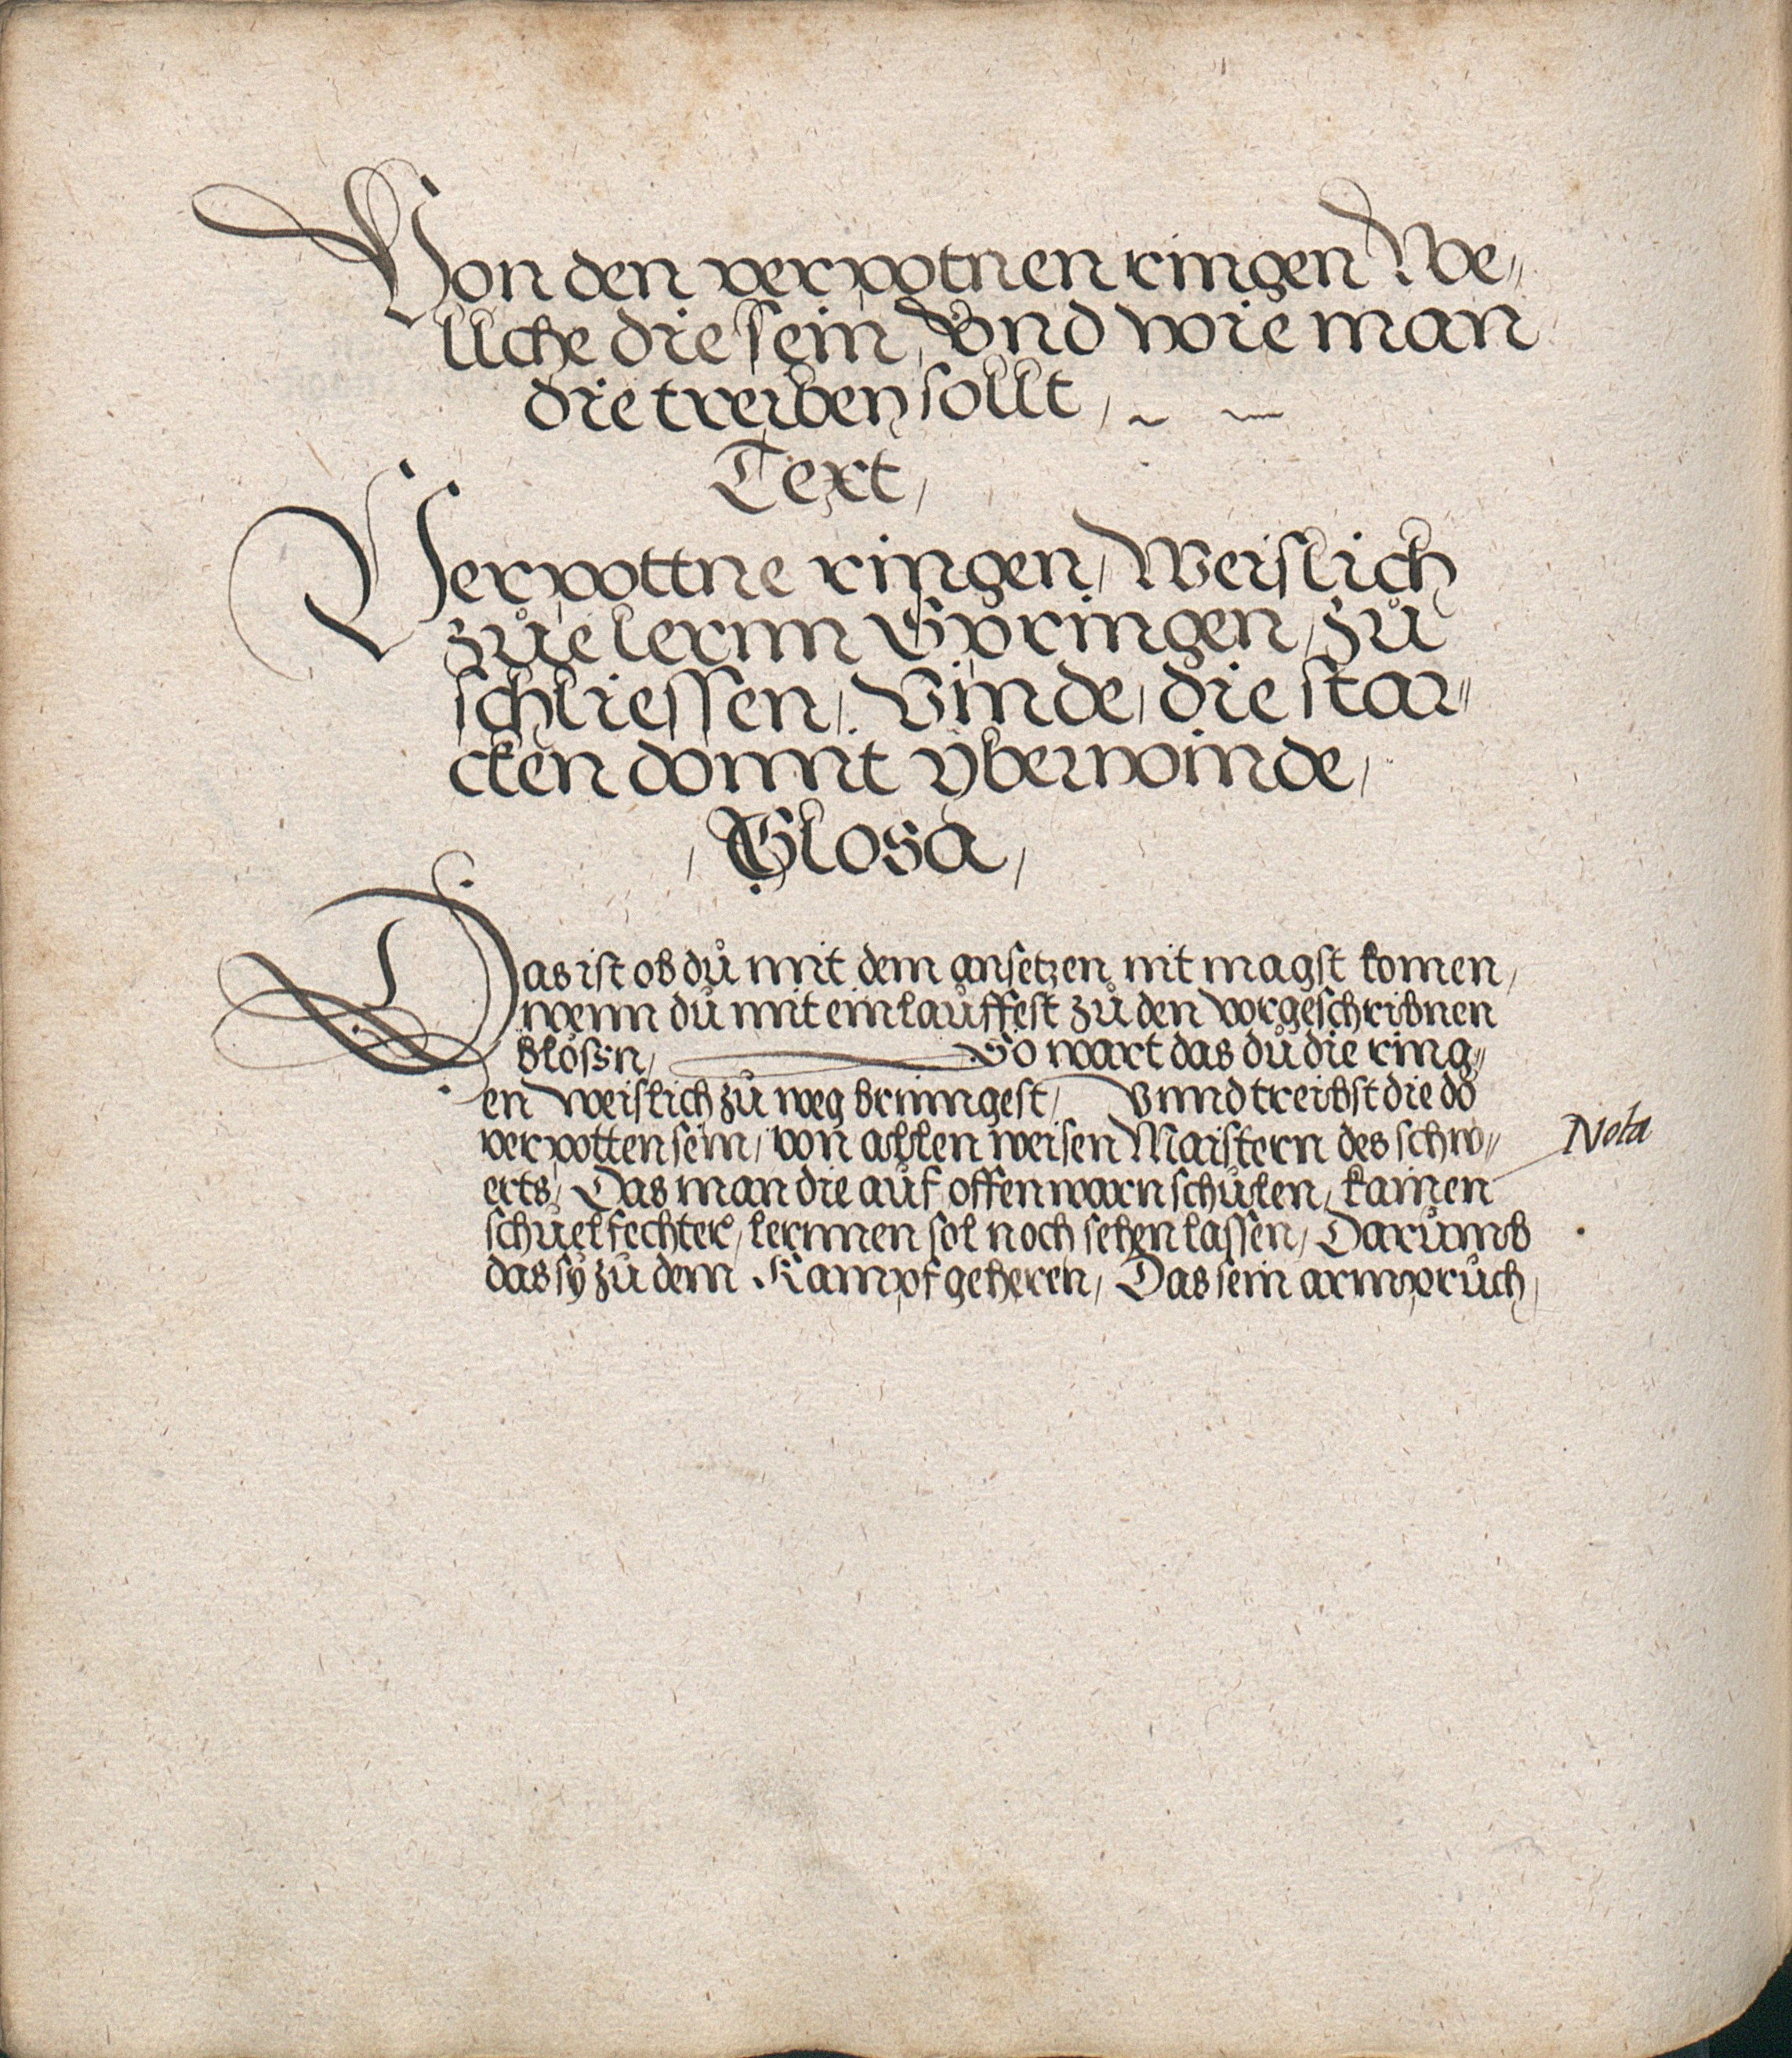 Von den verpotnen ringen We„
lliche die sein, Vnd wie man
die treiben sollt, ~ ~
Text,
Verpottne ringen, Weislich
zůe lernn Springen, zů
schliessen, Vinde, die star„
cken domit vberwinde,
, Glosa,
Das ist ob dů mit dem ansetzen nit magst komen,
wenn dů mit ein lauffest zů den vorgeschribnen
blössn, So wart das dů die ring„
en weislich zů weg brinngest, Vnnd treibst die do
verpotten sein, von allen weisen Maistern des schw„
erts, Das man die auf offenwarn schůlen, kainen
schuelfechter, lernnen sol noch sehen lassen, Darůmb
das sÿ zů dem Kampf geheren, Das sein armprůch,
Nota